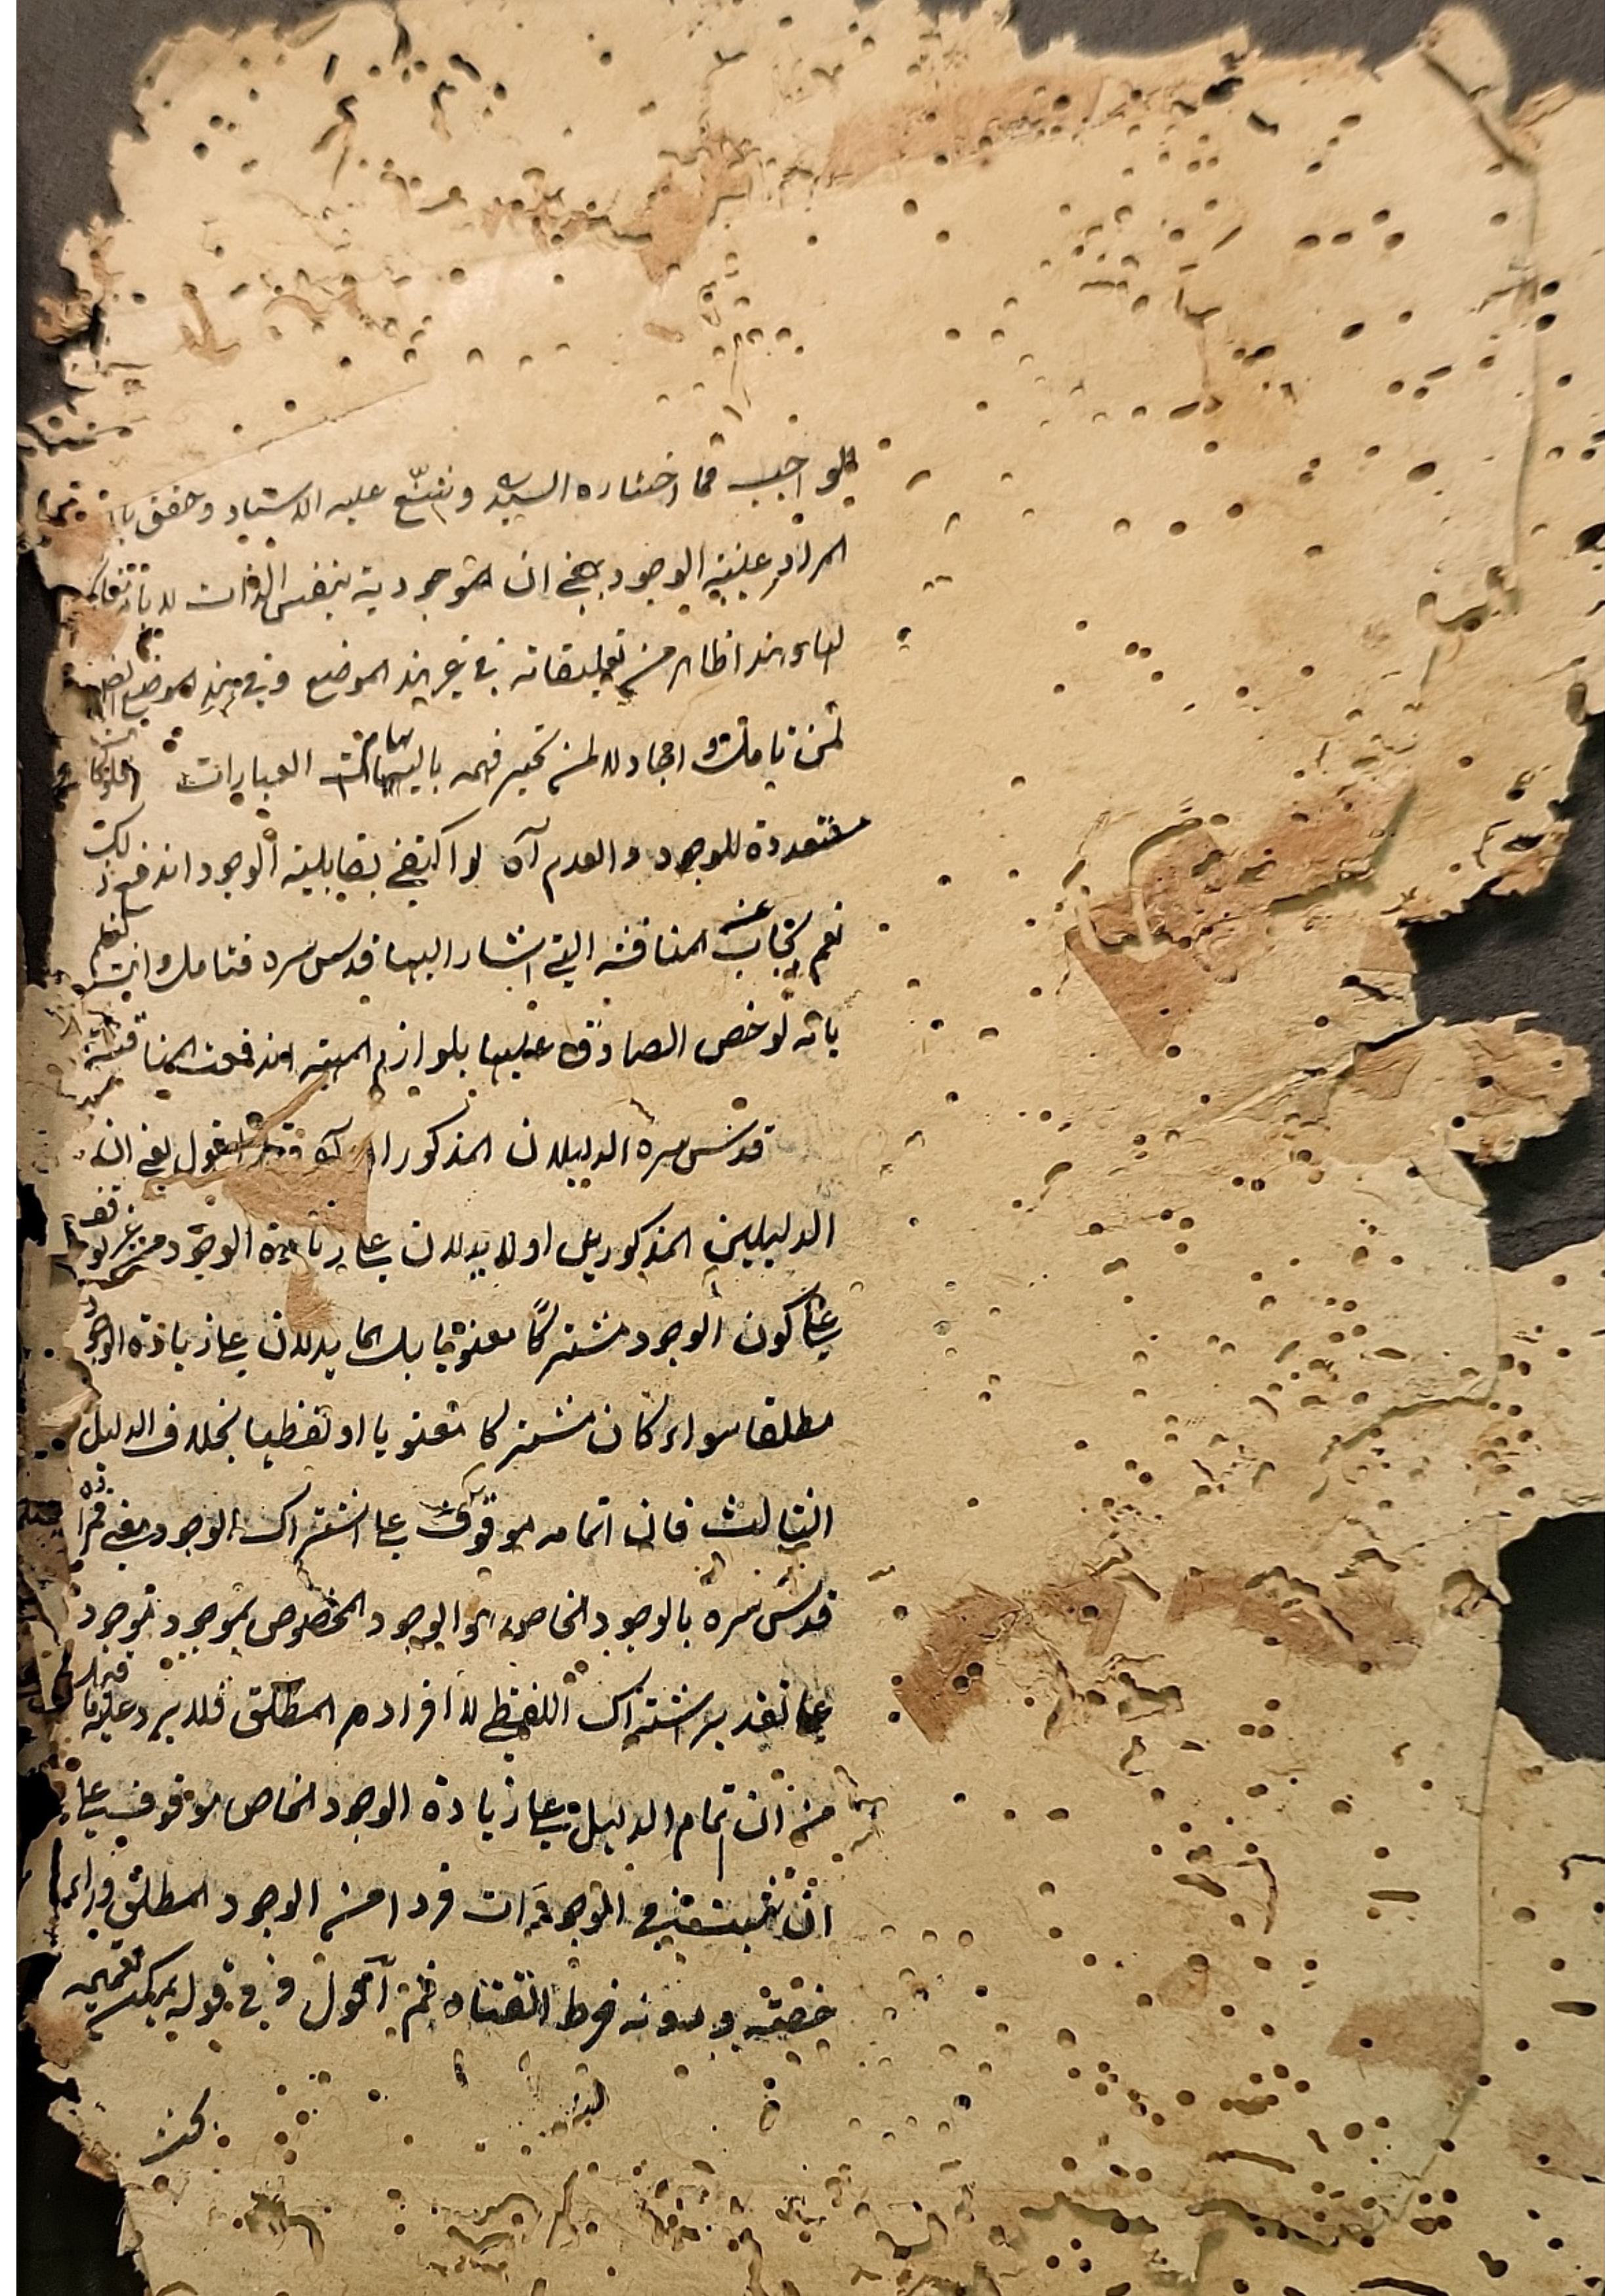 الواجب مما اختاره السيد وشنع عليه الاستاد وحقق بان
المراد بعينية الوجود يعني ان الموجودية بنفس الذات لا بارتفاع
هذا ظاهر من تعليقاته في غير هذا الموضع وفي هذا الموضع
لمن تأمل واجاد لا لمن تحير فهمه بايهامات العبارات
متعددة للوجود والعدم آه لو اكتفى بقابلية الوجود اندفع ذلك
نعم يجاب عن المناقشة التي اشار اليها قدس سره فتامل وانت تعلم
بانه لو خص الصادق عليها بلوازم المهية اندفعت المناقشة
قدس سره الدليلان المذكوران آه اقول يعني ان
الدليلين المذكورين اولا يدلان على زيادة الوجود من غير توقف
على كون الوجود مشتركا معنويا بل انما يدلان على زيادة الوجود
مطلقا سواء كان مشتركا معنويا او لفظيا بخلاف الدليل
الثالث فان اتمامه موقوف على اشتراك الوجود معنى فمراده
قدس سره بالوجود الخاص هو الوجود المخصوص بموجود موجود
على تقدير اشتراك اللفظ لا افراد المطلق فلا يرد عليه ما قيل
من ان تمام الدليل على زيادة الوجود الخاص موقوف على
ان يثبت في الموجودات فردا من الوجود المطلق وراء
حصته ودونه خرط القتاد ثم آقول وفي قوله يمكن تعميمه
بحث